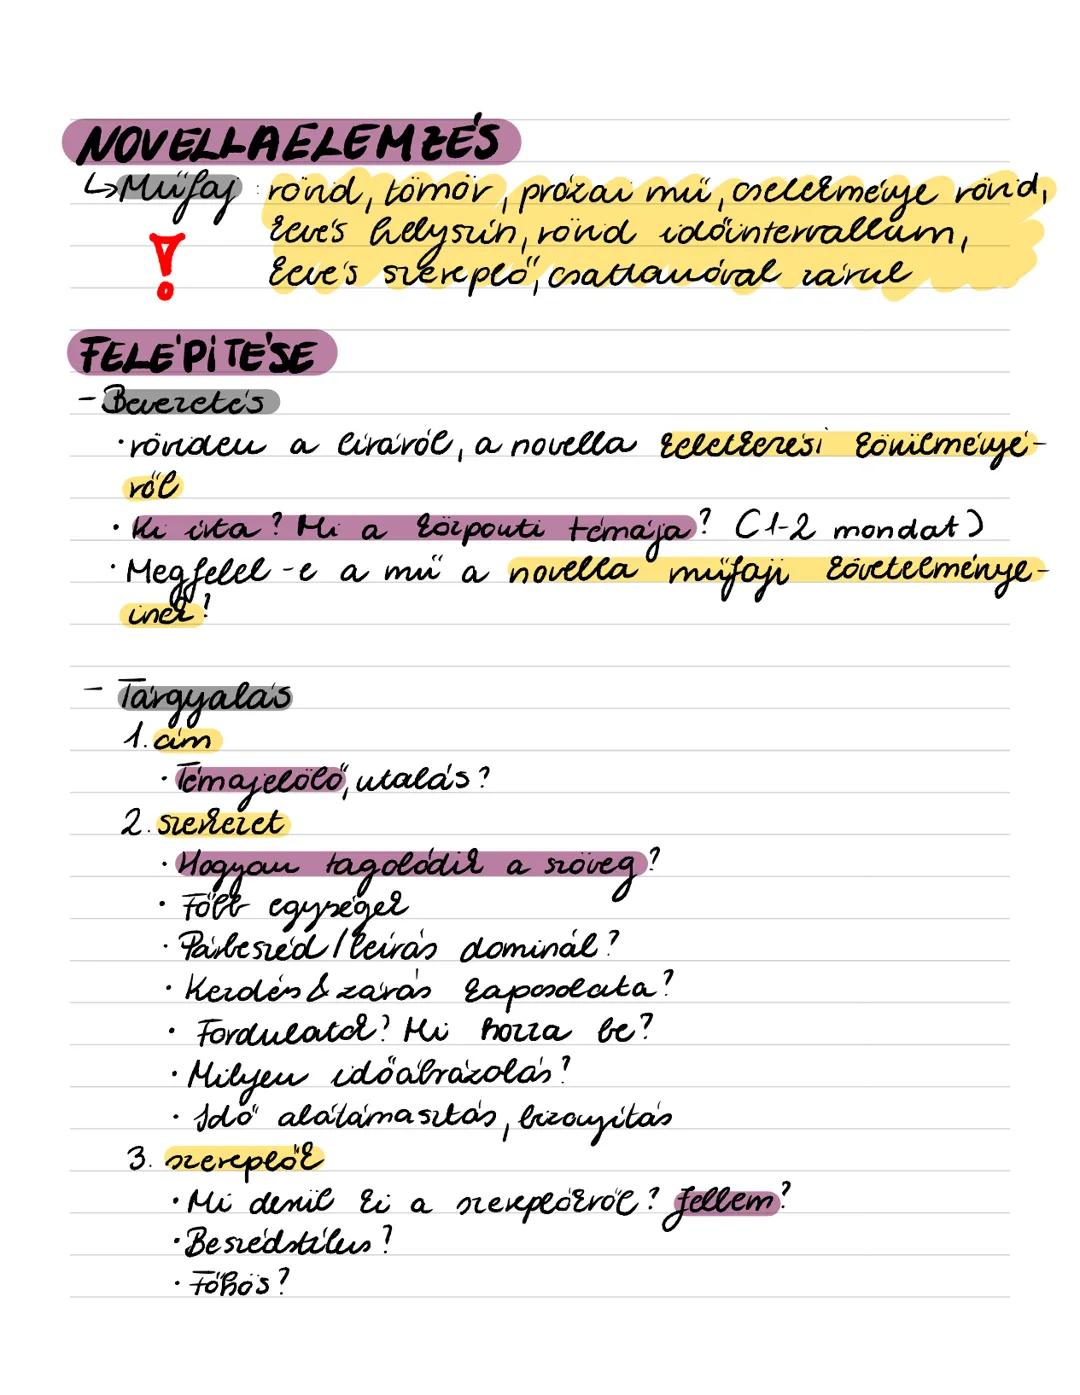 NOVELLAELEMZÉS
↳ Műfaj : rövid, tömör, prózai mű, cselekménye rövid,
kevés helyszín, rövid időintervallum,
kevés szereplő, csattanóval zárul
FELÉPÍTÉSE
- Bevezetés
· röviden a íráról, a novella keletkezési körülményé-
ről
· Ki írta? Mi a központi témája? (1-2 mondat)
· Megfelel-e a mű a novella műfaji követelménye-
inek?
- Tárgyalás
1. cím
· Témajelölő, utalás?
2. szerkezet
· Hogyan tagolódik a szöveg?
· Főbb egységek
· Párbeszéd / leírás dominál?
· Kezdés & zárás kapcsolata?
· Fordulatok? Mi hozza be?
· Milyen időábrázolás?
· Idő alátámasztás, bizonyítás
3. szereplők
· Mi derül ki a szereplőkről? Jellem?
· Beszédstílus?
· Főhős?